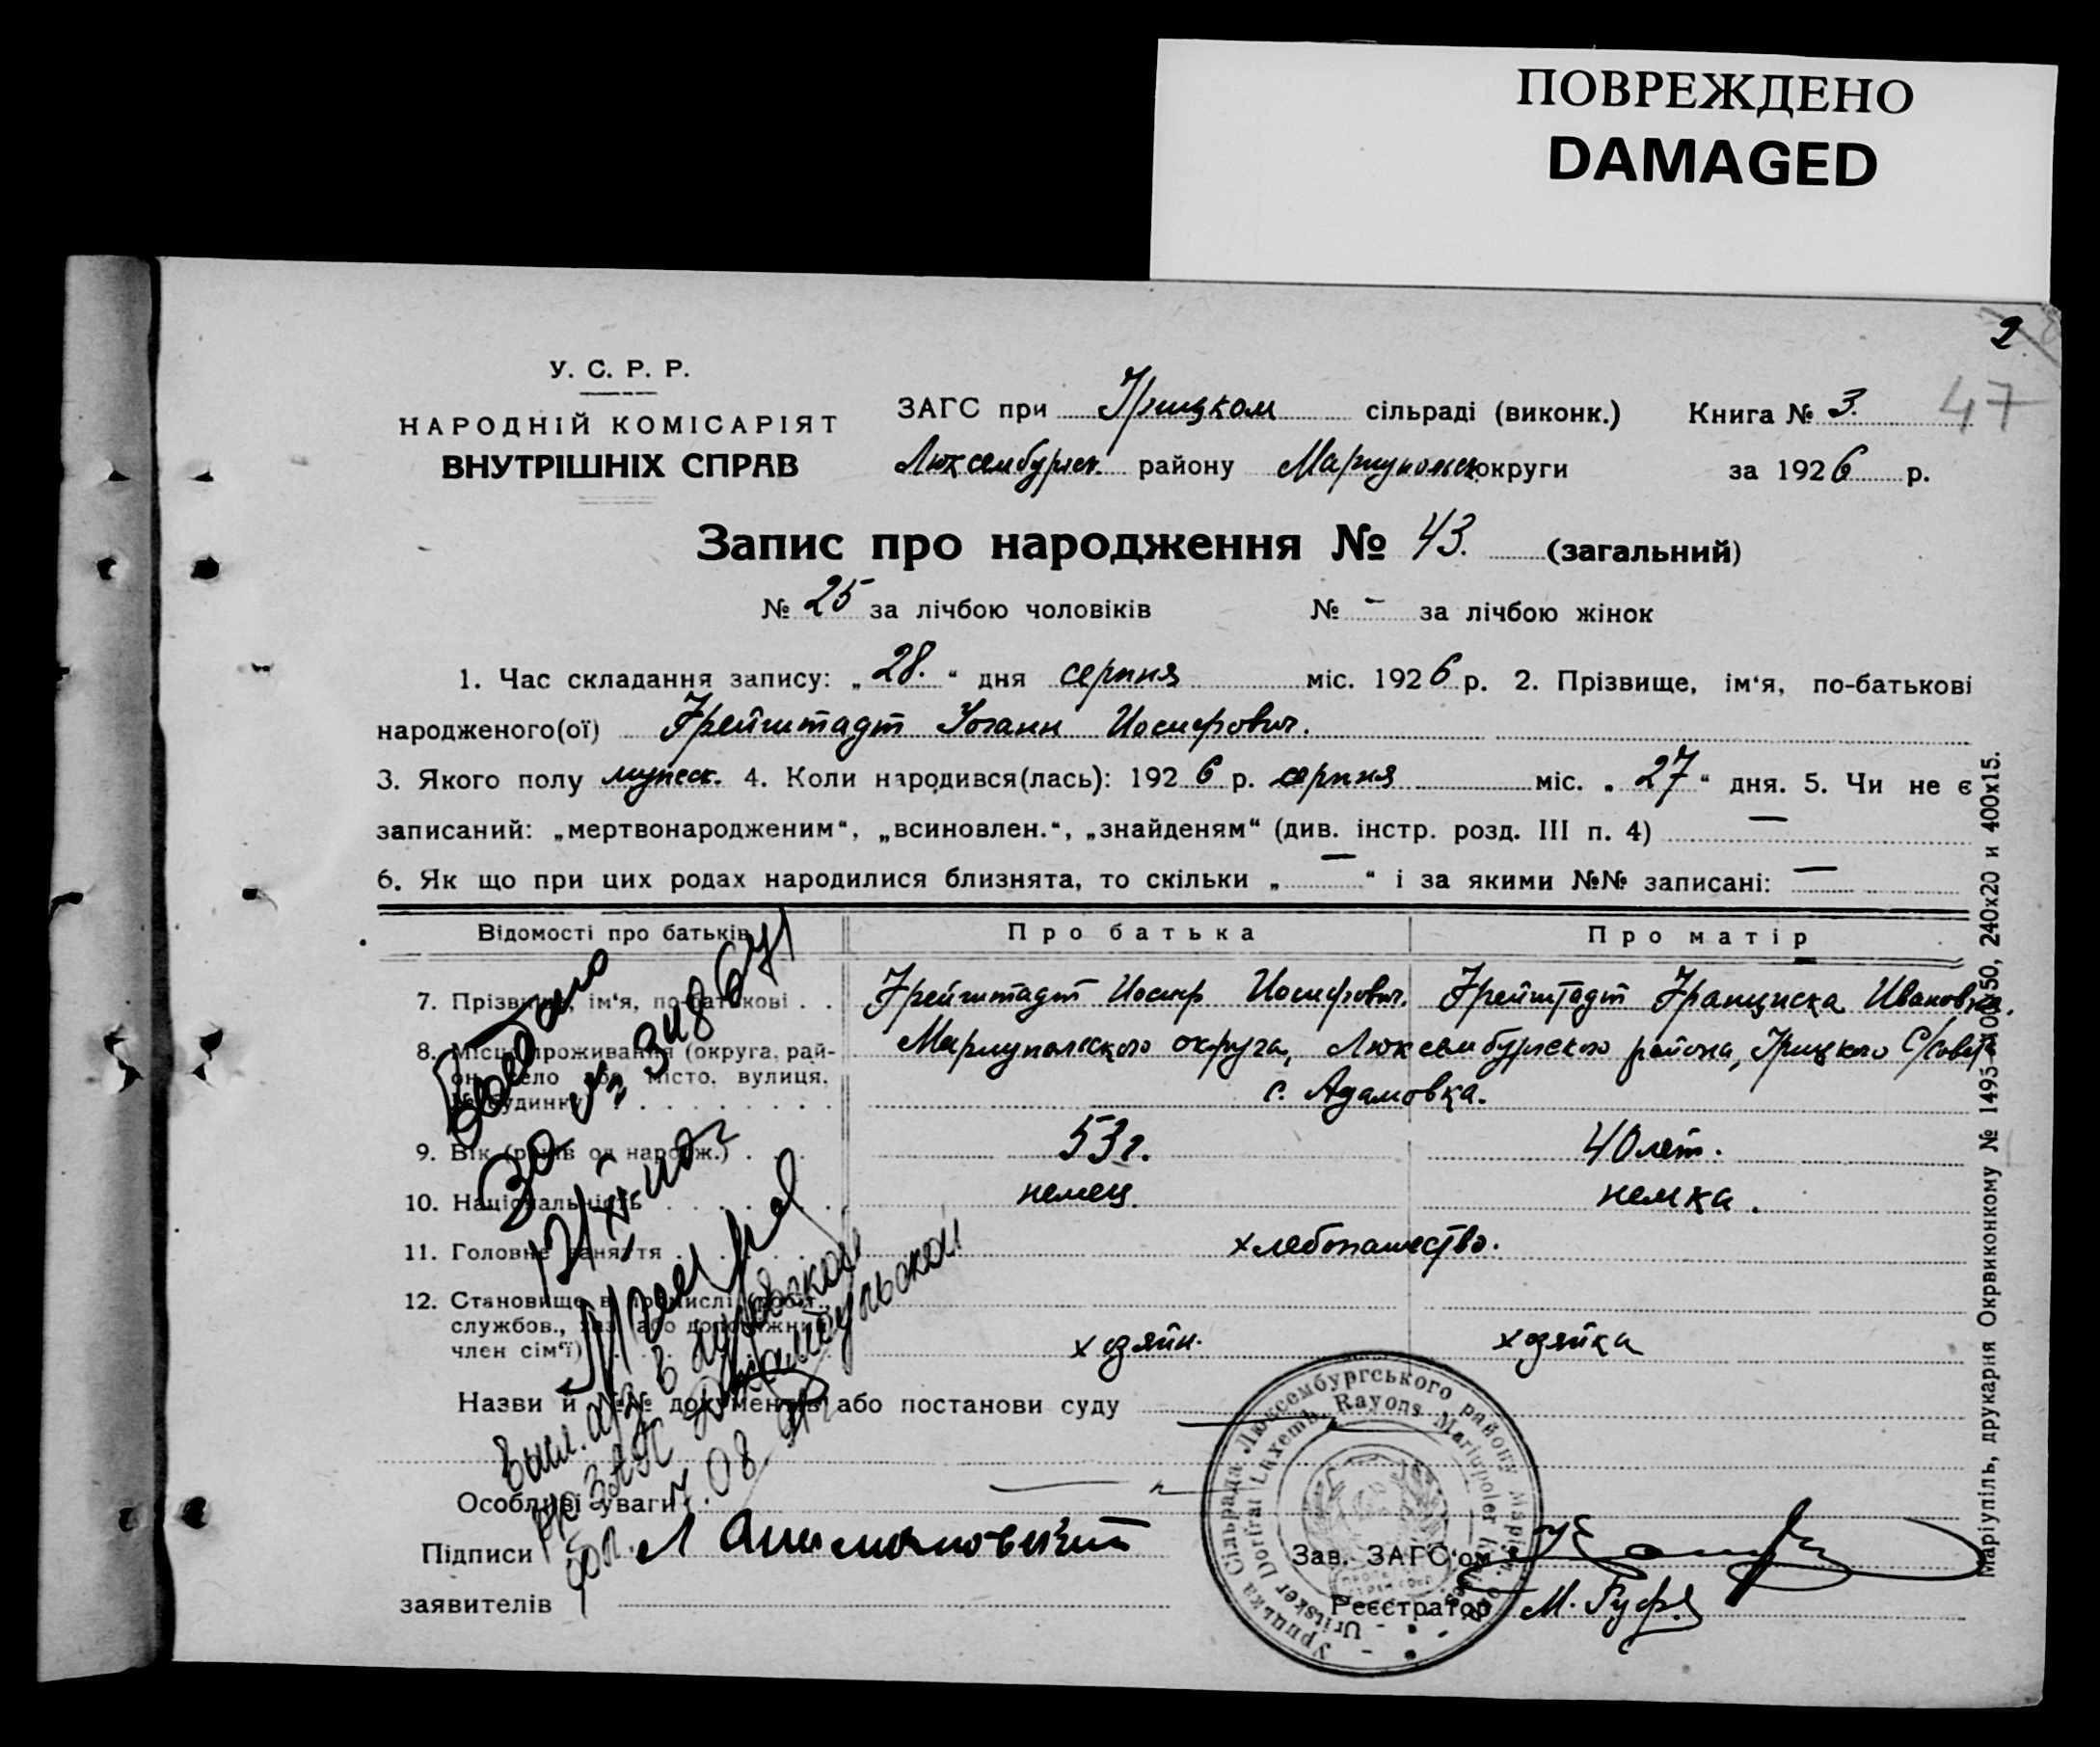 ПОВРЕЖДЕНО
DAMAGED
2
47
У. С. Р. Р.
НАРОДНІЙ КОМІСАРІЯТ
ВНУТРІШНІХ СПРАВ
ЗАГС при Урицком сільраді (виконк.) Книга № 3.
Люксембургск. району Мариупольск. округи за 1926 р.
Запис про народження № 43. (загальний)
№ 25 за лічбою чоловіків № - за лічбою жінок
1. Час складання запису: „28.“ дня серпня міс. 1926 р. 2. Прізвище, ім‘я, по-батькові
народженого(ої) Фрейштадт Иоганн Иосифович.
3. Якого полу мужеск. 4. Коли народився(лась): 1926 р. серпня міс. „27“ дня. 5. Чи не є
записаний: „мертвонародженим“, „всиновлен.“, „знайденям“ (див. інстр. розд. III п. 4) —
6. Як що при цих родах народилися близнята, то скільки „—“ і за якими №№ записані: —
Відомості про батьків Про батька Про матір
7. Прізвище, ім‘я, по-батькові . . Фрейштадт Иосиф Иосифович. Фрейштадт Франциска Ивановна.
8. Місце проживання (округа, рай- Мариупольского округа, Люксембургского района, Урицкого С/совета
он, село або місто, вулиця, с. Адамовка.
№ будинку) . . . . . . . . .
9. Вік (років од народж.) . . . 53 г. 40 лет.
10. Національність . . . . . . немец. немка.
11. Головне заняття . . . . . . хлебопашество.
12. Становище в промислі (робіт.,
службов., хаз. або допоміжний
член сім‘ї) хозяин. хозяйка
Назви й №№ документів або постанови суду
Особливі уваги
Підписи
заявителів
Зав. ЗАГС‘ом
Реєстратор
Урицька Сільрада Люксембургського району Маріюп. окр.
Uritsker Dorfrat Luxemb. Rayons Mariupoler
№ 348671
Маріупіль, друкарня Окрвиконкому № 1495—100х50, 240х20 и 400х15.